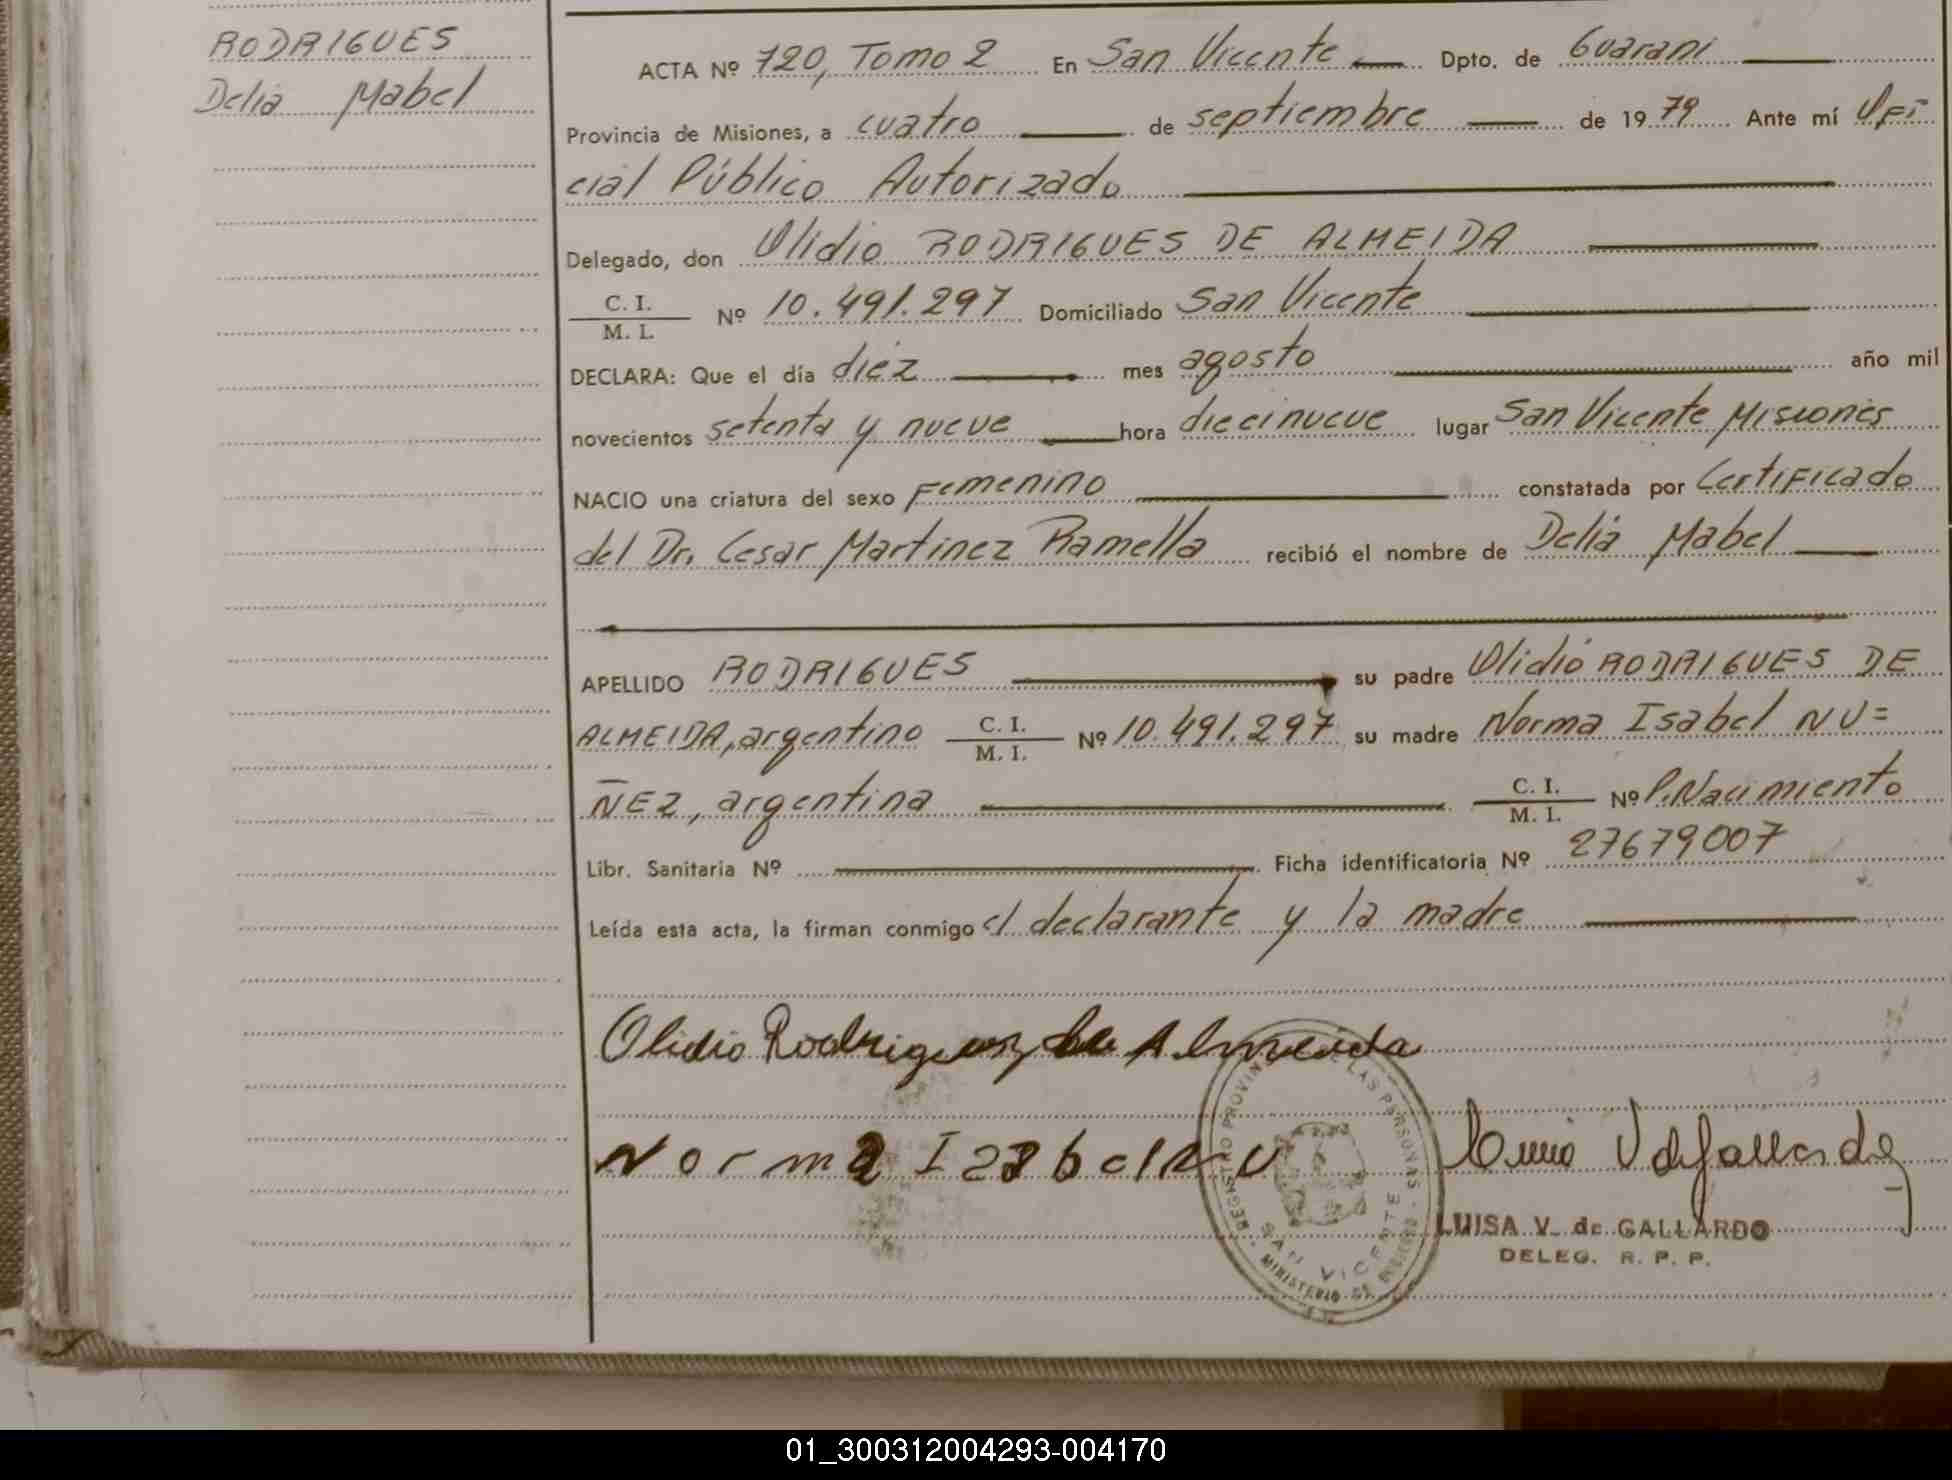 RODRIGUES
Delia Mabel
ACTA Nº 720, Tomo 2 En San Vicente Dpto. de Guaraní
Provincia de Misiones, a cuatro de septiembre de 1979 Ante mí Ofi
cial Público Autorizado
Delegado, don Olidio RODRIGUES DE ALMEIDA
C. I.
M. I.
Nº 10.491.297 Domiciliado San Vicente
DECLARA: Que el día diez mes agosto año mil
novecientos setenta y nueve hora diecinueve lugar San Vicente Misiones
NACIO una criatura del sexo Femenino constatada por Certificado
del Dr. Cesar Martinez Ramella recibió el nombre de Delia Mabel
APELLIDO RODRIGUES su padre Olidio RODRIGUES DE
ALMEIDA, argentino C. I. M. I. Nº 10.491.297 su madre Norma Isabel NU=
ÑEZ, argentina C. I. M. I. Nº P. Nacimiento
Libr. Sanitaria Nº Ficha identificatoria Nº 27679007
Leída esta acta, la firman conmigo el declarante y la madre
Olidio Rodriguez de Almeida
Norma Isabel Nu
REGISTRO PROVINC LAS PERSONAS
SAN VICENTE
MINISTERIO DE GOBIERNO
LUISA V. de GALLARDO
DELEG. R. P. P.
01_300312004293-004170